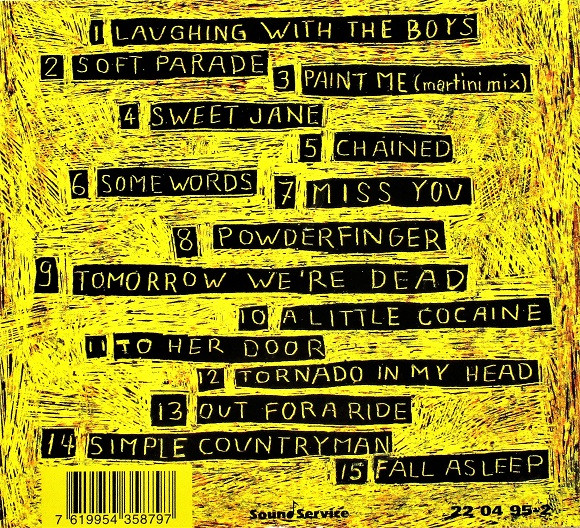 1 LAUGHING WITH THE BOYS
2 SOFT PARADE
3 PAINT ME (martini mix)
4 SWEET JANE
5 CHAINED
6 SOME WORDS
7 MISS YOU
8 POWDERFINGER
9 TOMORROW WE'RE DEAD
10 A LITTLE COCAINE
11 TO HER DOOR
12 TORNADO IN MY HEAD
13 OUT FOR A RIDE
14 SIMPLE COUNTRYMAN
15 FALL ASLEEP
7 619954 358797
Sound Service
22 04 95-2